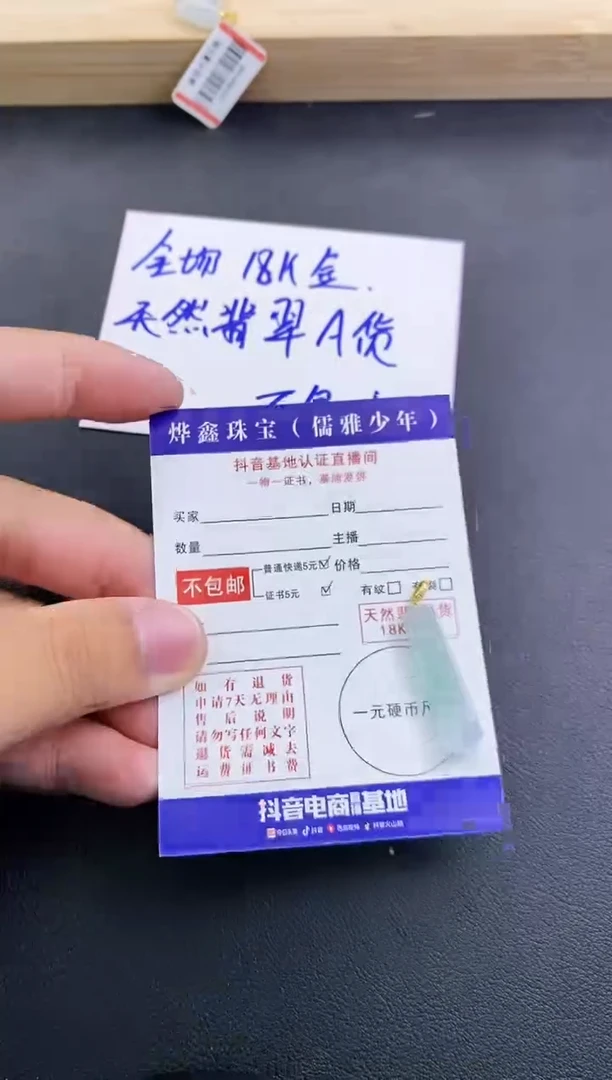 全场 18K金.
天然翡翠A货
烨鑫珠宝(儒雅少年)
抖音基地认证直播间
一物一证书,
买家 日期
数量 主播
不包邮 普通快递5元 价格
证书5元 有纹
天然 货
18K
一元硬币
如有退货
申请7天无理由
售后说明
请勿写任何文字
退货需减去
运费证书费
抖音电商 基地
抖音